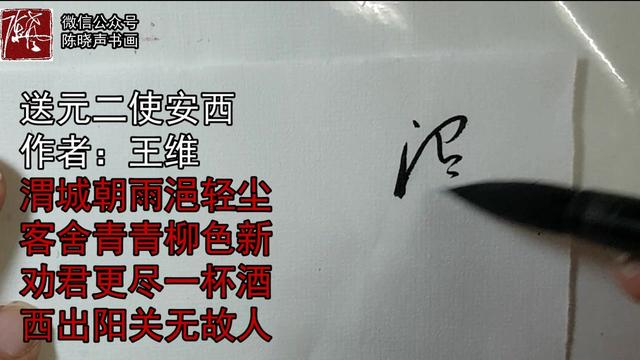 微信公众号
陈晓声书画
送元二使安西
作者：王维
渭城朝雨浥轻尘
客舍青青柳色新
劝君更尽一杯酒
西出阳关无故人